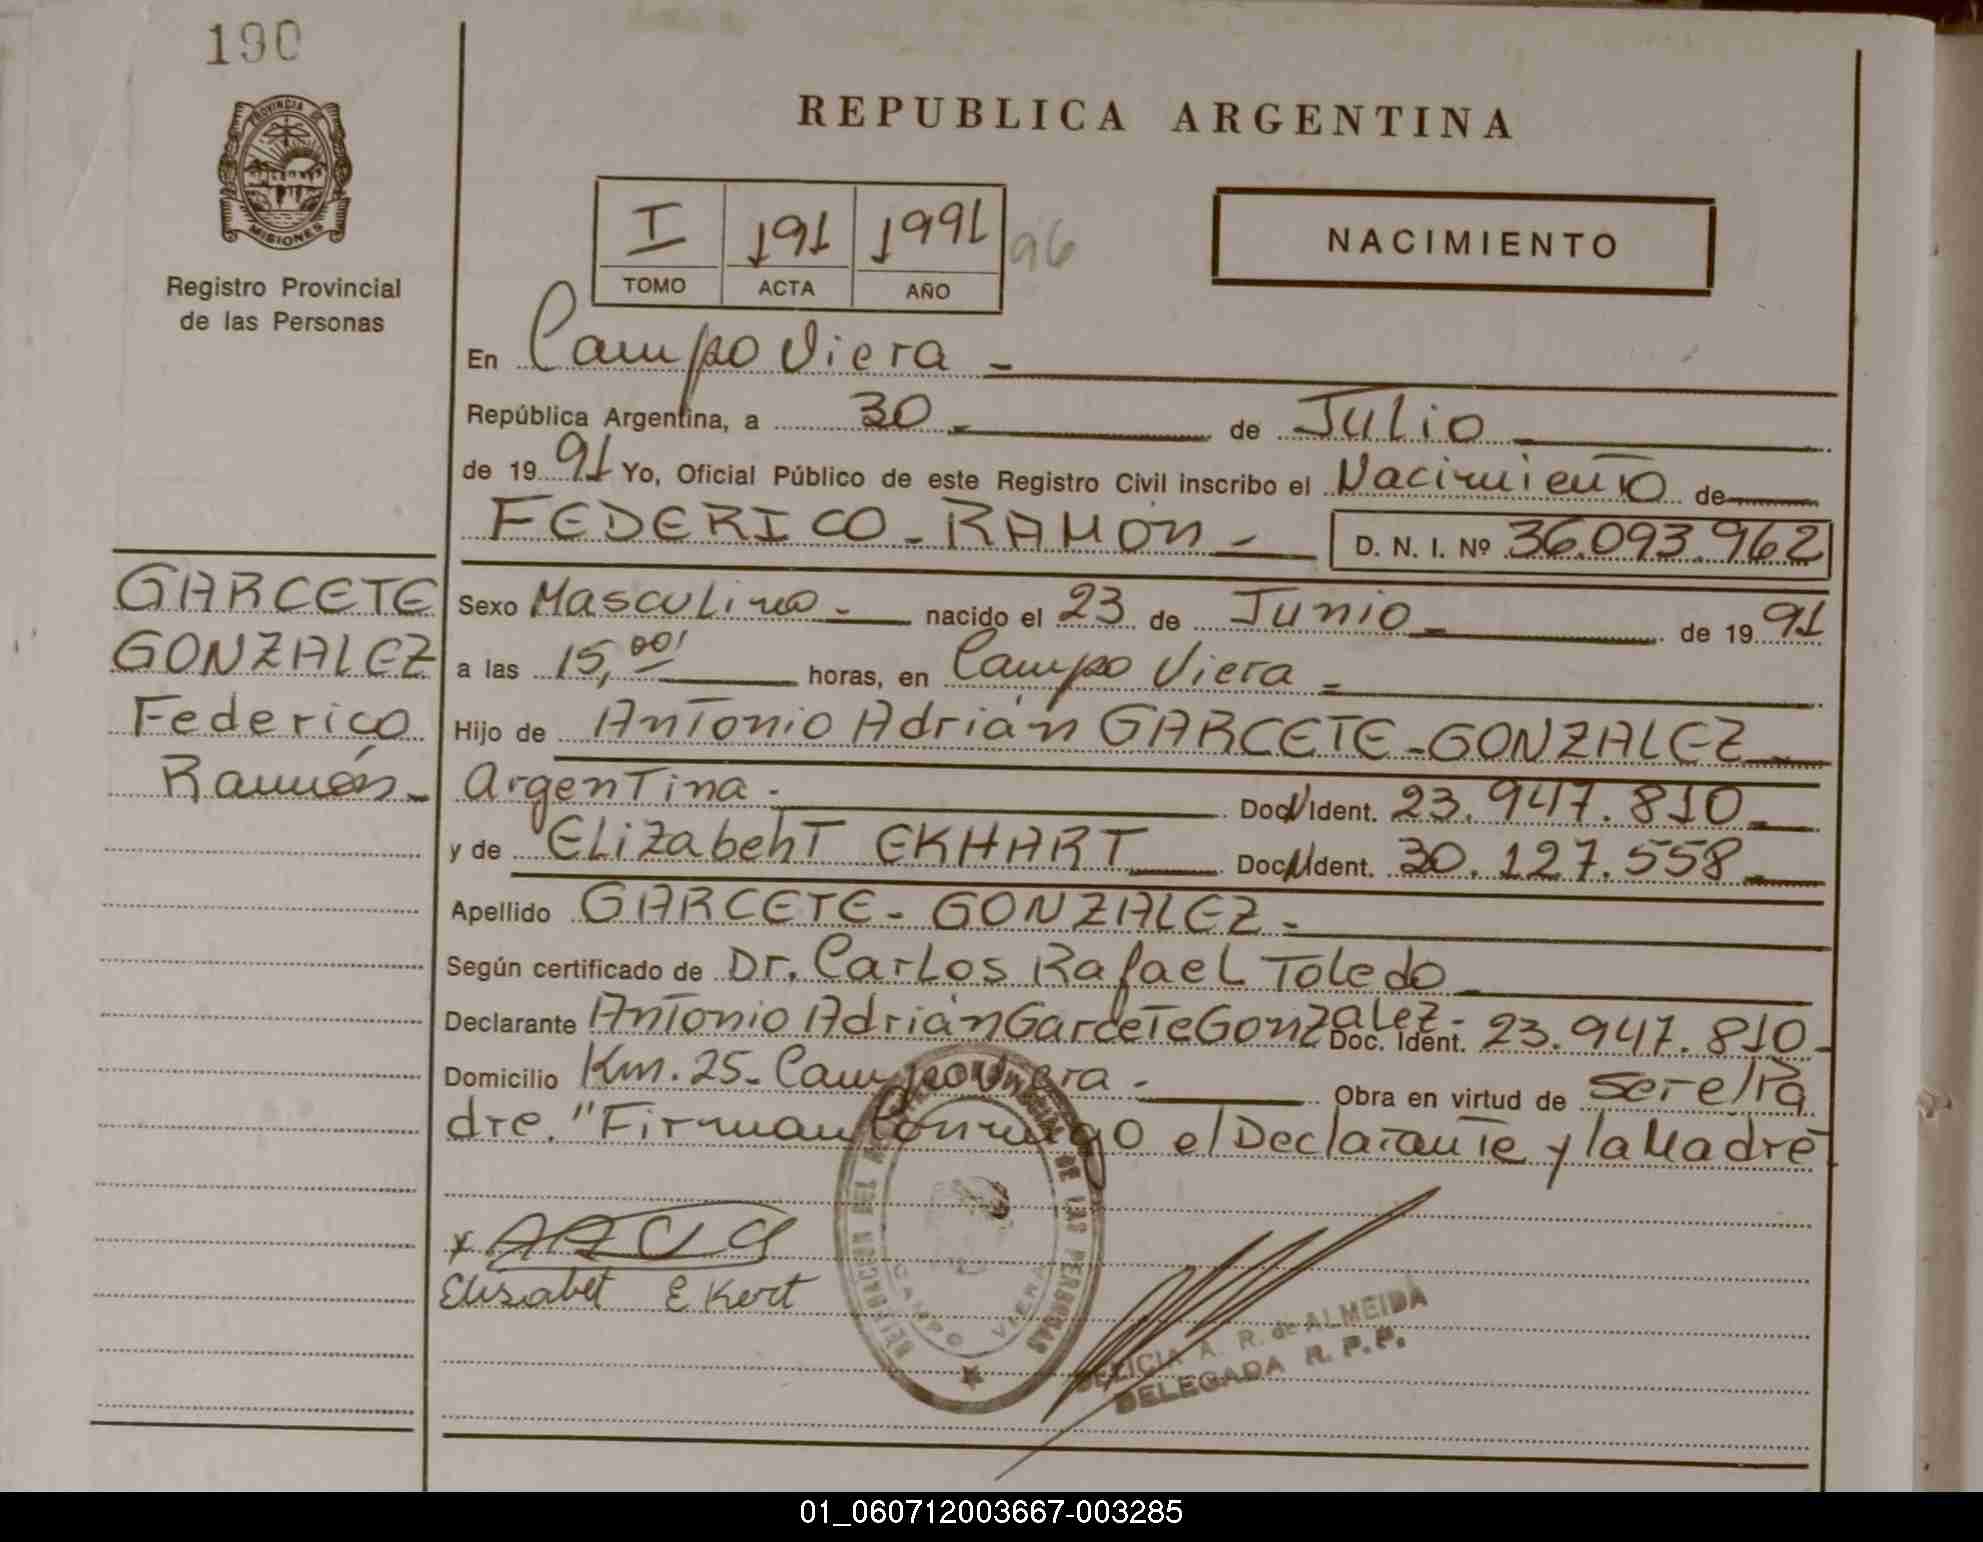 190
PROVINCIA DE
MISIONES
Registro Provincial
de las Personas
REPUBLICA ARGENTINA
I 191 1991 96
TOMO ACTA AÑO
NACIMIENTO
En Campo Viera -
República Argentina, a 30 - de Julio
de 19 91 Yo, Oficial Público de este Registro Civil inscribo el Nacimiento de
FEDERICO - RAMÓN - D. N. I. Nº 36.093.962
GARCETE
GONZALEZ
Federico
Ramón -
Sexo Masculino - nacido el 23 de Junio - de 19 91
a las 15,00' horas, en Campo Viera -
Hijo de Antonio Adrián GARCETE - GONZALEZ -
Argentina - Doc. Ident. 23.947.810 -
y de ELizabehT EKHART Doc. Ident. 30.127.558 -
Apellido GARCETE - GONZALEZ -
Según certificado de Dr. Carlos Rafael Toledo
Declarante Antonio Adrián Garcete Gonzalez - Doc. Ident. 23.947.810 -
Domicilio Km. 25 - Campo Viera - Obra en virtud de ser el Pa
dre. "Firman Conmigo el Declarante y la Madre
x
Elisabet Ekert
DE LAS PERSONAS
CAMPO VIERA
DELICIA A. R. de ALMEIDA
DELEGADA R. P. P.
01_060712003667-003285